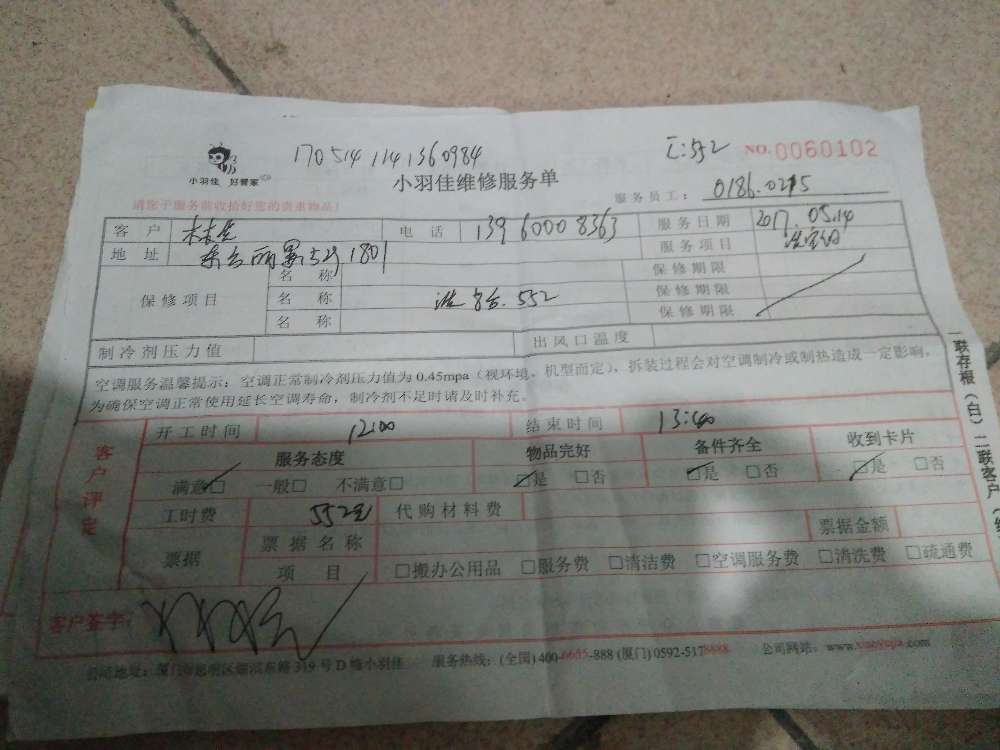 170514114136 0984
552 NO.0060102
小羽佳 好管家
小羽佳维修服务单
请您于服务前收拾好您的贵重物品！
服务员工： 0186.0215
客户 林生 电话 13960008363 服务日期 2017.05.14
地址 1801 服务项目
保修项目
名称 保修期限
名称 552 保修期限
名称 保修期限
制冷剂压力值 出风口温度
空调服务温馨提示：空调正常制冷剂压力值为0.45mpa（视环境、机型而定），拆装过程会对空调制冷或制热造成一定影响，
为确保空调正常使用延长空调寿命，制冷剂不足时请及时补充。
客户评定
开工时间 12:00 结束时间 13:40
服务态度 物品完好 备件齐全 收到卡片
满意□ 一般□ 不满意□ □是 □否 □是 □否 □是 □否
工时费 552元 代购材料费
票据 票据名称 票据金额
项目 □搬办公用品 □服务费 □清洁费 □空调服务费 □清洗费 □疏通费
客户签字：
服务热线：(全国) 400-6655-888 (厦门) 0592-5178888 公司网站：www.xiaoyujia.com
一联存根（白）二联客户